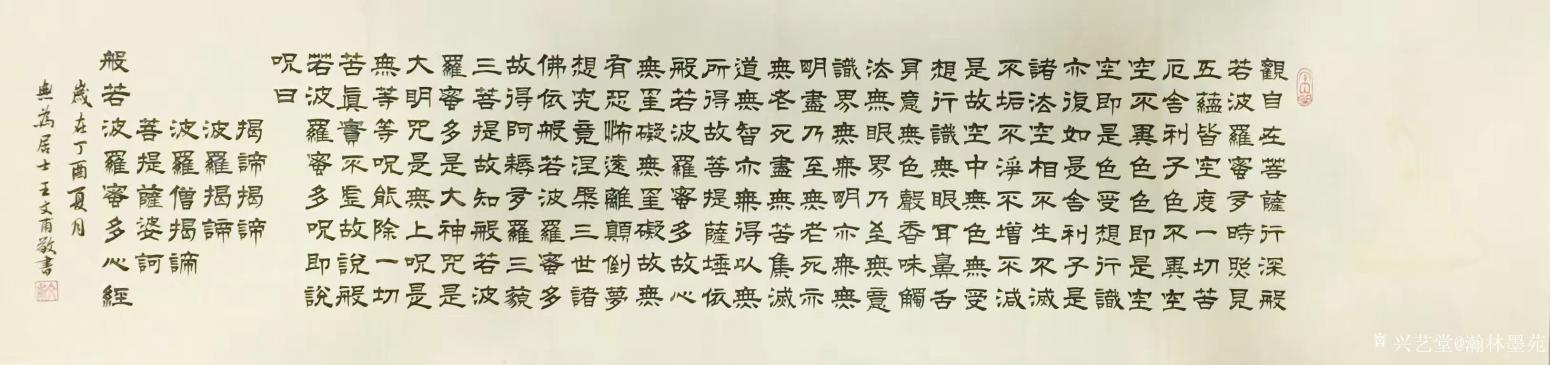 觀自在菩薩行深般
若波羅蜜多時照見
五蘊皆空度一切苦
厄舍利子色不異空
空不異色色即是空
空即是色受想行識
亦復如是舍利子是
諸法空相不生不滅
不垢不淨不增不減
是故空中無色無受
想行識無眼耳鼻舌
身意無色聲香味觸
法無眼界乃至無意
識界無無明亦無無
明盡乃至無老死亦
無老死盡無苦集滅
道無智亦無得以無
所得故菩提薩埵依
般若波羅蜜多故心
無罣礙無罣礙故無
有恐怖遠離顛倒夢
想究竟涅槃三世諸
佛依般若波羅蜜多
故得阿耨多羅三藐
三菩提故知般若波
羅蜜多是大神咒是
大明咒是無上呪是
無等等呪能除一切
苦真實不虛故說般
若波羅蜜多呪即說
呪曰
揭諦揭諦
波羅揭諦
波羅僧揭諦
菩提薩婆訶
般若波羅蜜多心經
歲在丁酉夏月
為居士王文甫敬書
兴艺堂@瀚林墨苑